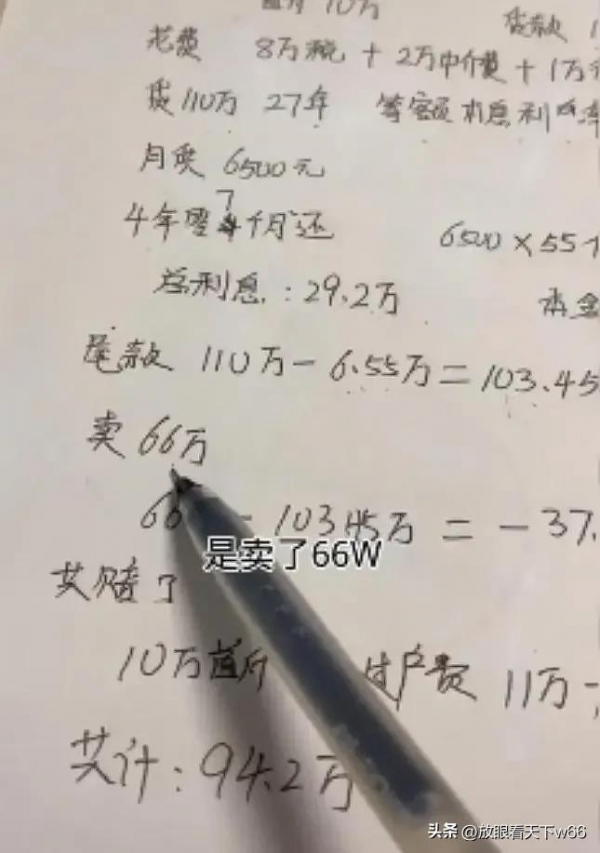 首付 10万
贷款 1
花费 8万税 + 2万中介费 + 1万
贷110万 27年 等额本息利率
月供 6500元
4年零7个月还 6500×55个
总利息：29.2万 本金
尾款 110万-6.55万=103.45
卖66万
66 - 103.45万 = -37.
是卖了66W
共赔了
10万首付 过户费 11万
共计：94.2万
头条 @放眼看天下w66